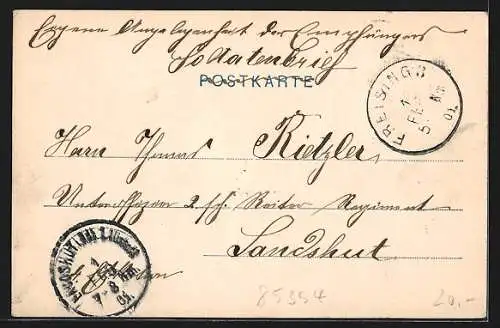 Eigene Angelegenheit des Empfängers
Soldatenbrief
POSTKARTE
FREISING 3
7
FEB
5-
NM
01.
Herrn Thomas Rietzler
Unteroffizier 2. sch. Reiter Regiment
Landshut
LANDSHUT
7-8
01.
85354
20,-